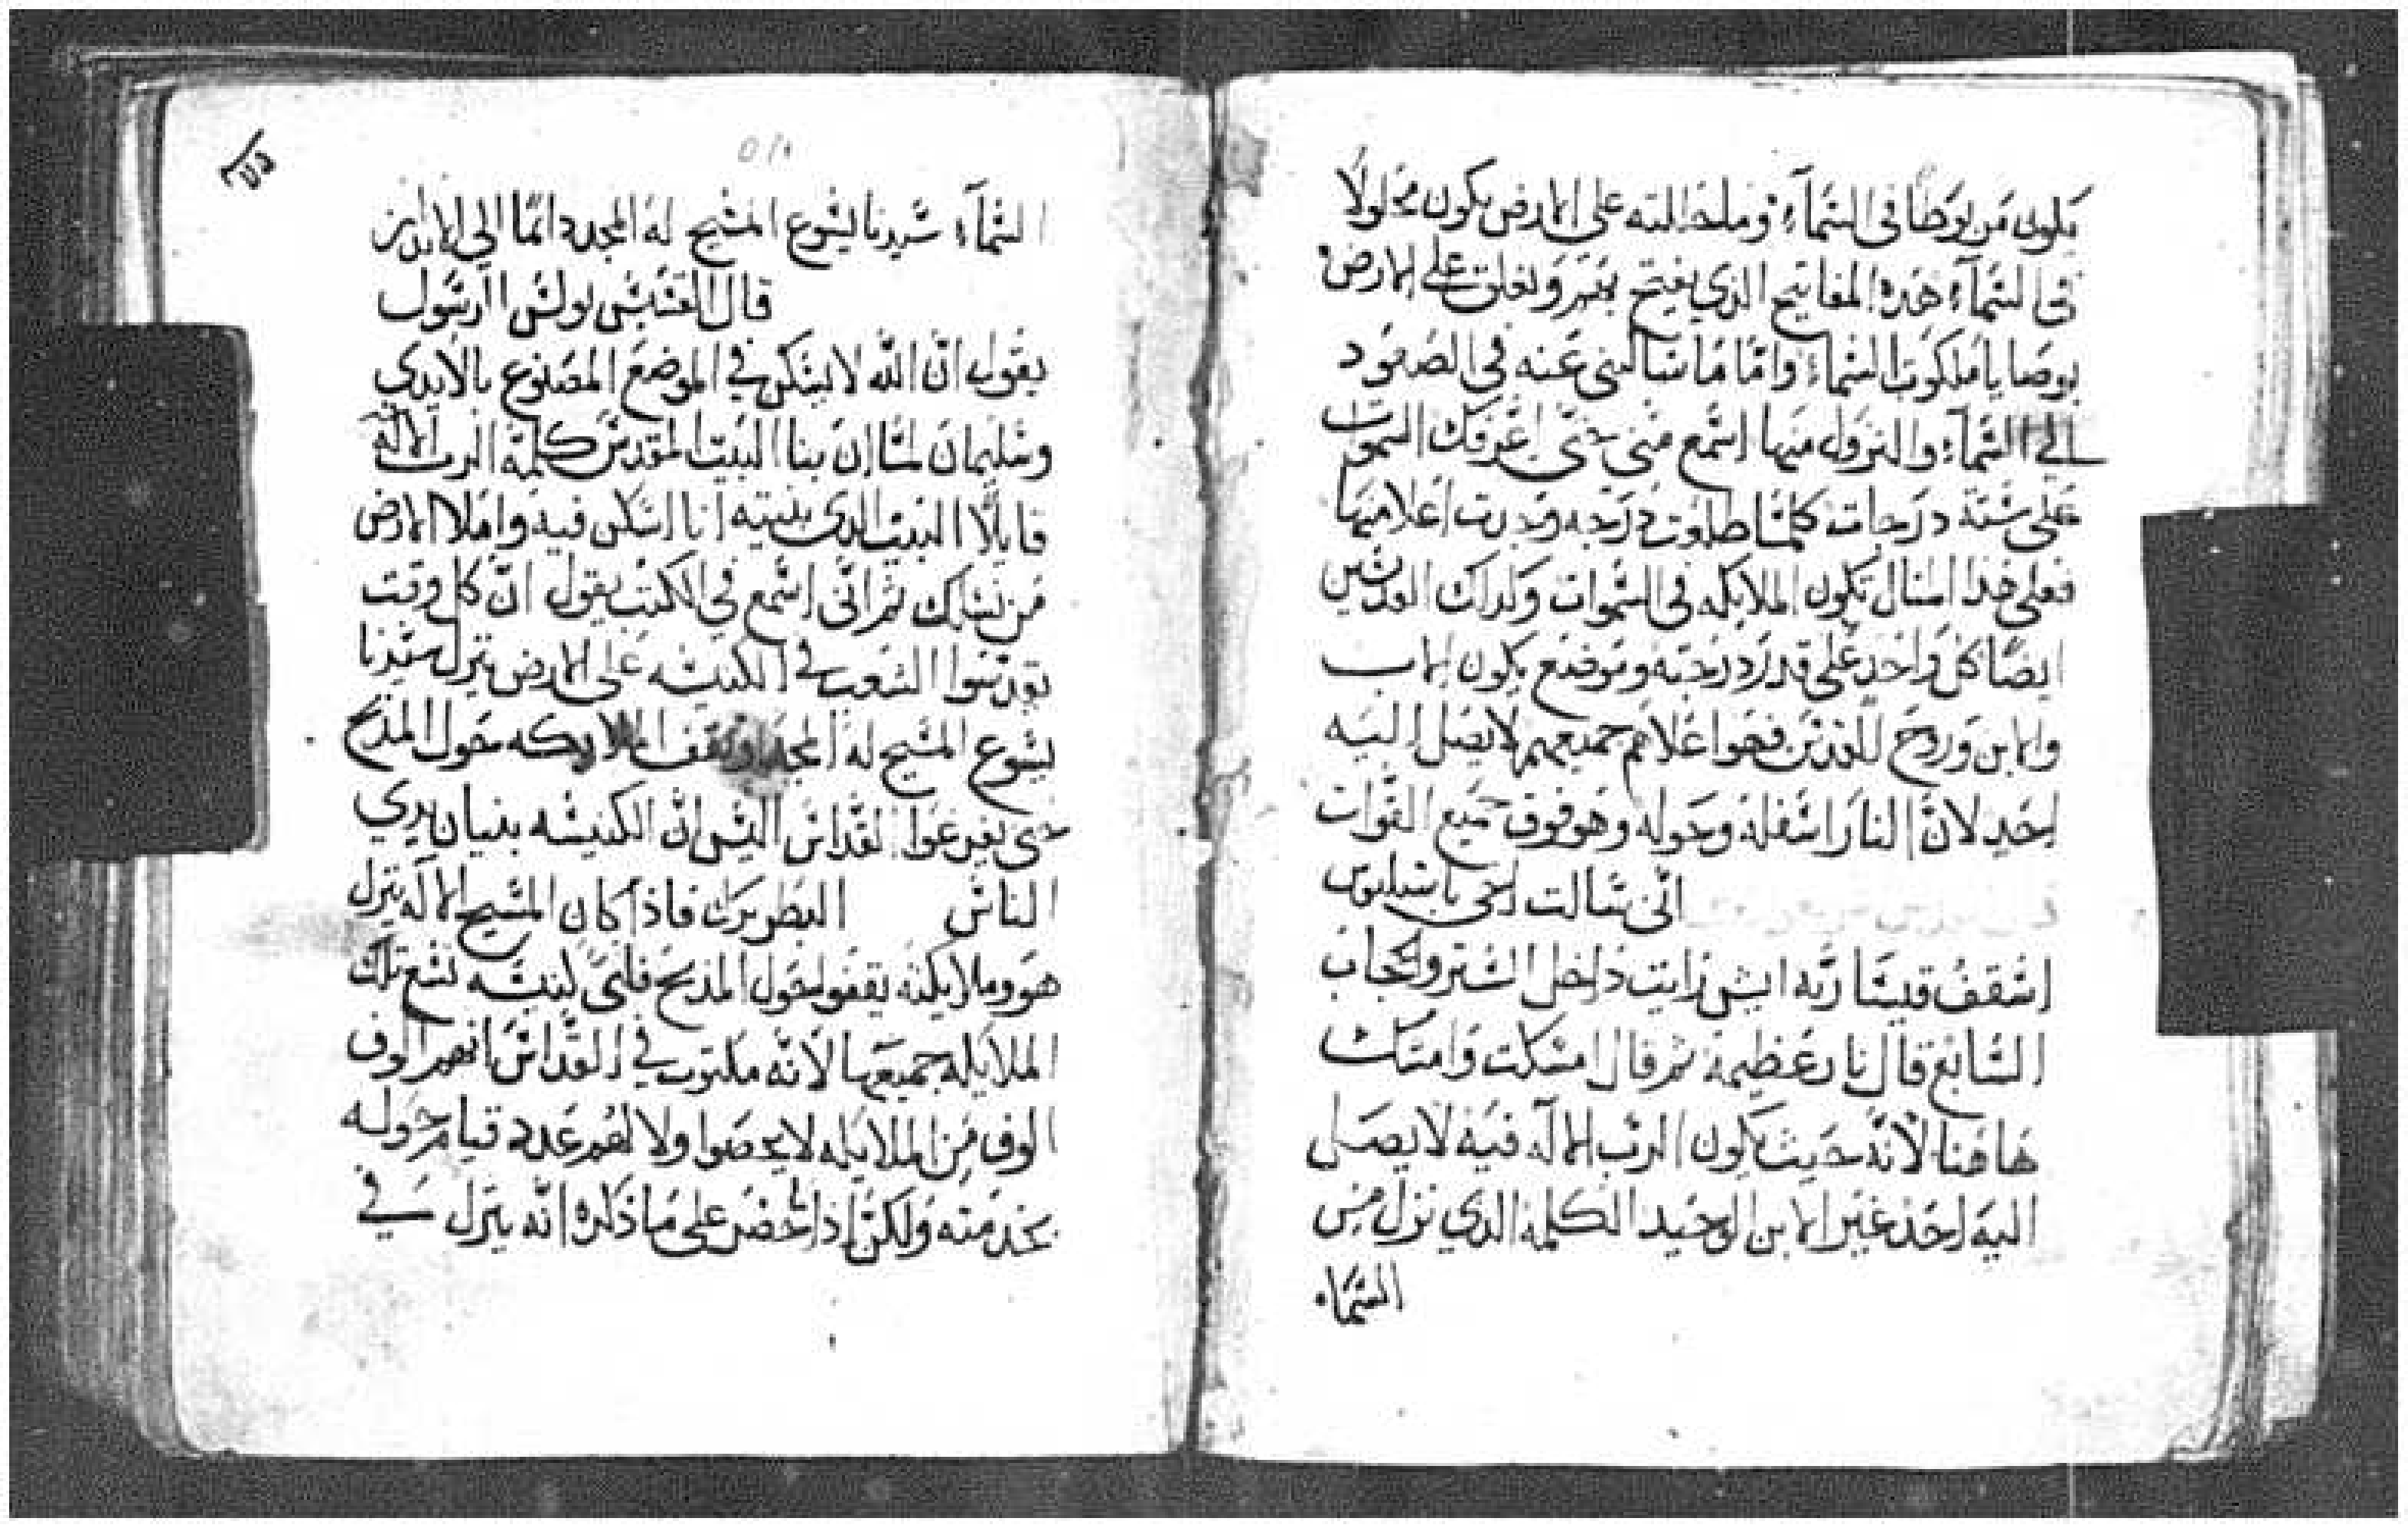 يكون مربوطا في السماء وما حللته على الارض يكون محلولا
في السماء هذه المفاتيح الذي يفتح بهم ويغلق على الارض
بوصايا ملكوت السماء واما ما سالتني عنه في الصعود
الي السماء والنزول منها اسمع مني حتى اعرفك السموات
على ستة درجات كلما طلعت درجه وجدت اعلا منها
فعلى هذا المثال تكون الملايكه في السموات وكذلك القديسين
ايضا كل واحد على قدر درجته وموضع يكون الاب
والابن وروح القدس فهوا اعلاهم جميعهم لا يصل اليه
احد لان النار اسفله وحوله وهو فوق جميع القوات
انى سالت اخي باسيليوس
اسقف قيسارية ايش رايت داخل الستر والحجاب
السابع قال نار عظيمة ثم قال امسكت وامتك
هاهنا لانه حيث يكون الرب الاله فيه لا يصل
اليه احد غير الابن الوحيد الكلمة الذي نزل من
السماء
السماء سيدنا يشوع المسيح له المجد دائما الي الابدين
قال القديس بولس الرسول
يقول ان الله لا يسكن في الموضع المصنوع بالايدي
وسليمان لما ان بنا البيت المقدس كلمة الرب الاله
قايلا البيت الذي بنيته انا اسكن فيه واملا الارض
من نسلك ثم انى اسمع في الكتب يقول ان كل وقت
يقدسوا الشعب في الكنيسه على الارض ينزل سيدنا
يشوع المسيح له المجد وتقف الملايكه حول المذبح
حتى يفرغوا القداس اليس ان الكنيسه بنيان يدي
الناس البطريرك فاذا كان المسيح الاله ينزل
هو وملايكته يقفوا حول المذبح فاى كنيسه تسع تلك
الملايكه جميعها لانه مكتوب في القداس انهم الوف
الوف من الملايكه لا يحصوا ولا لهم عدد قيام حوله
بخدمته ولكن اذا نحضر على ما ذكره انه ينزل في